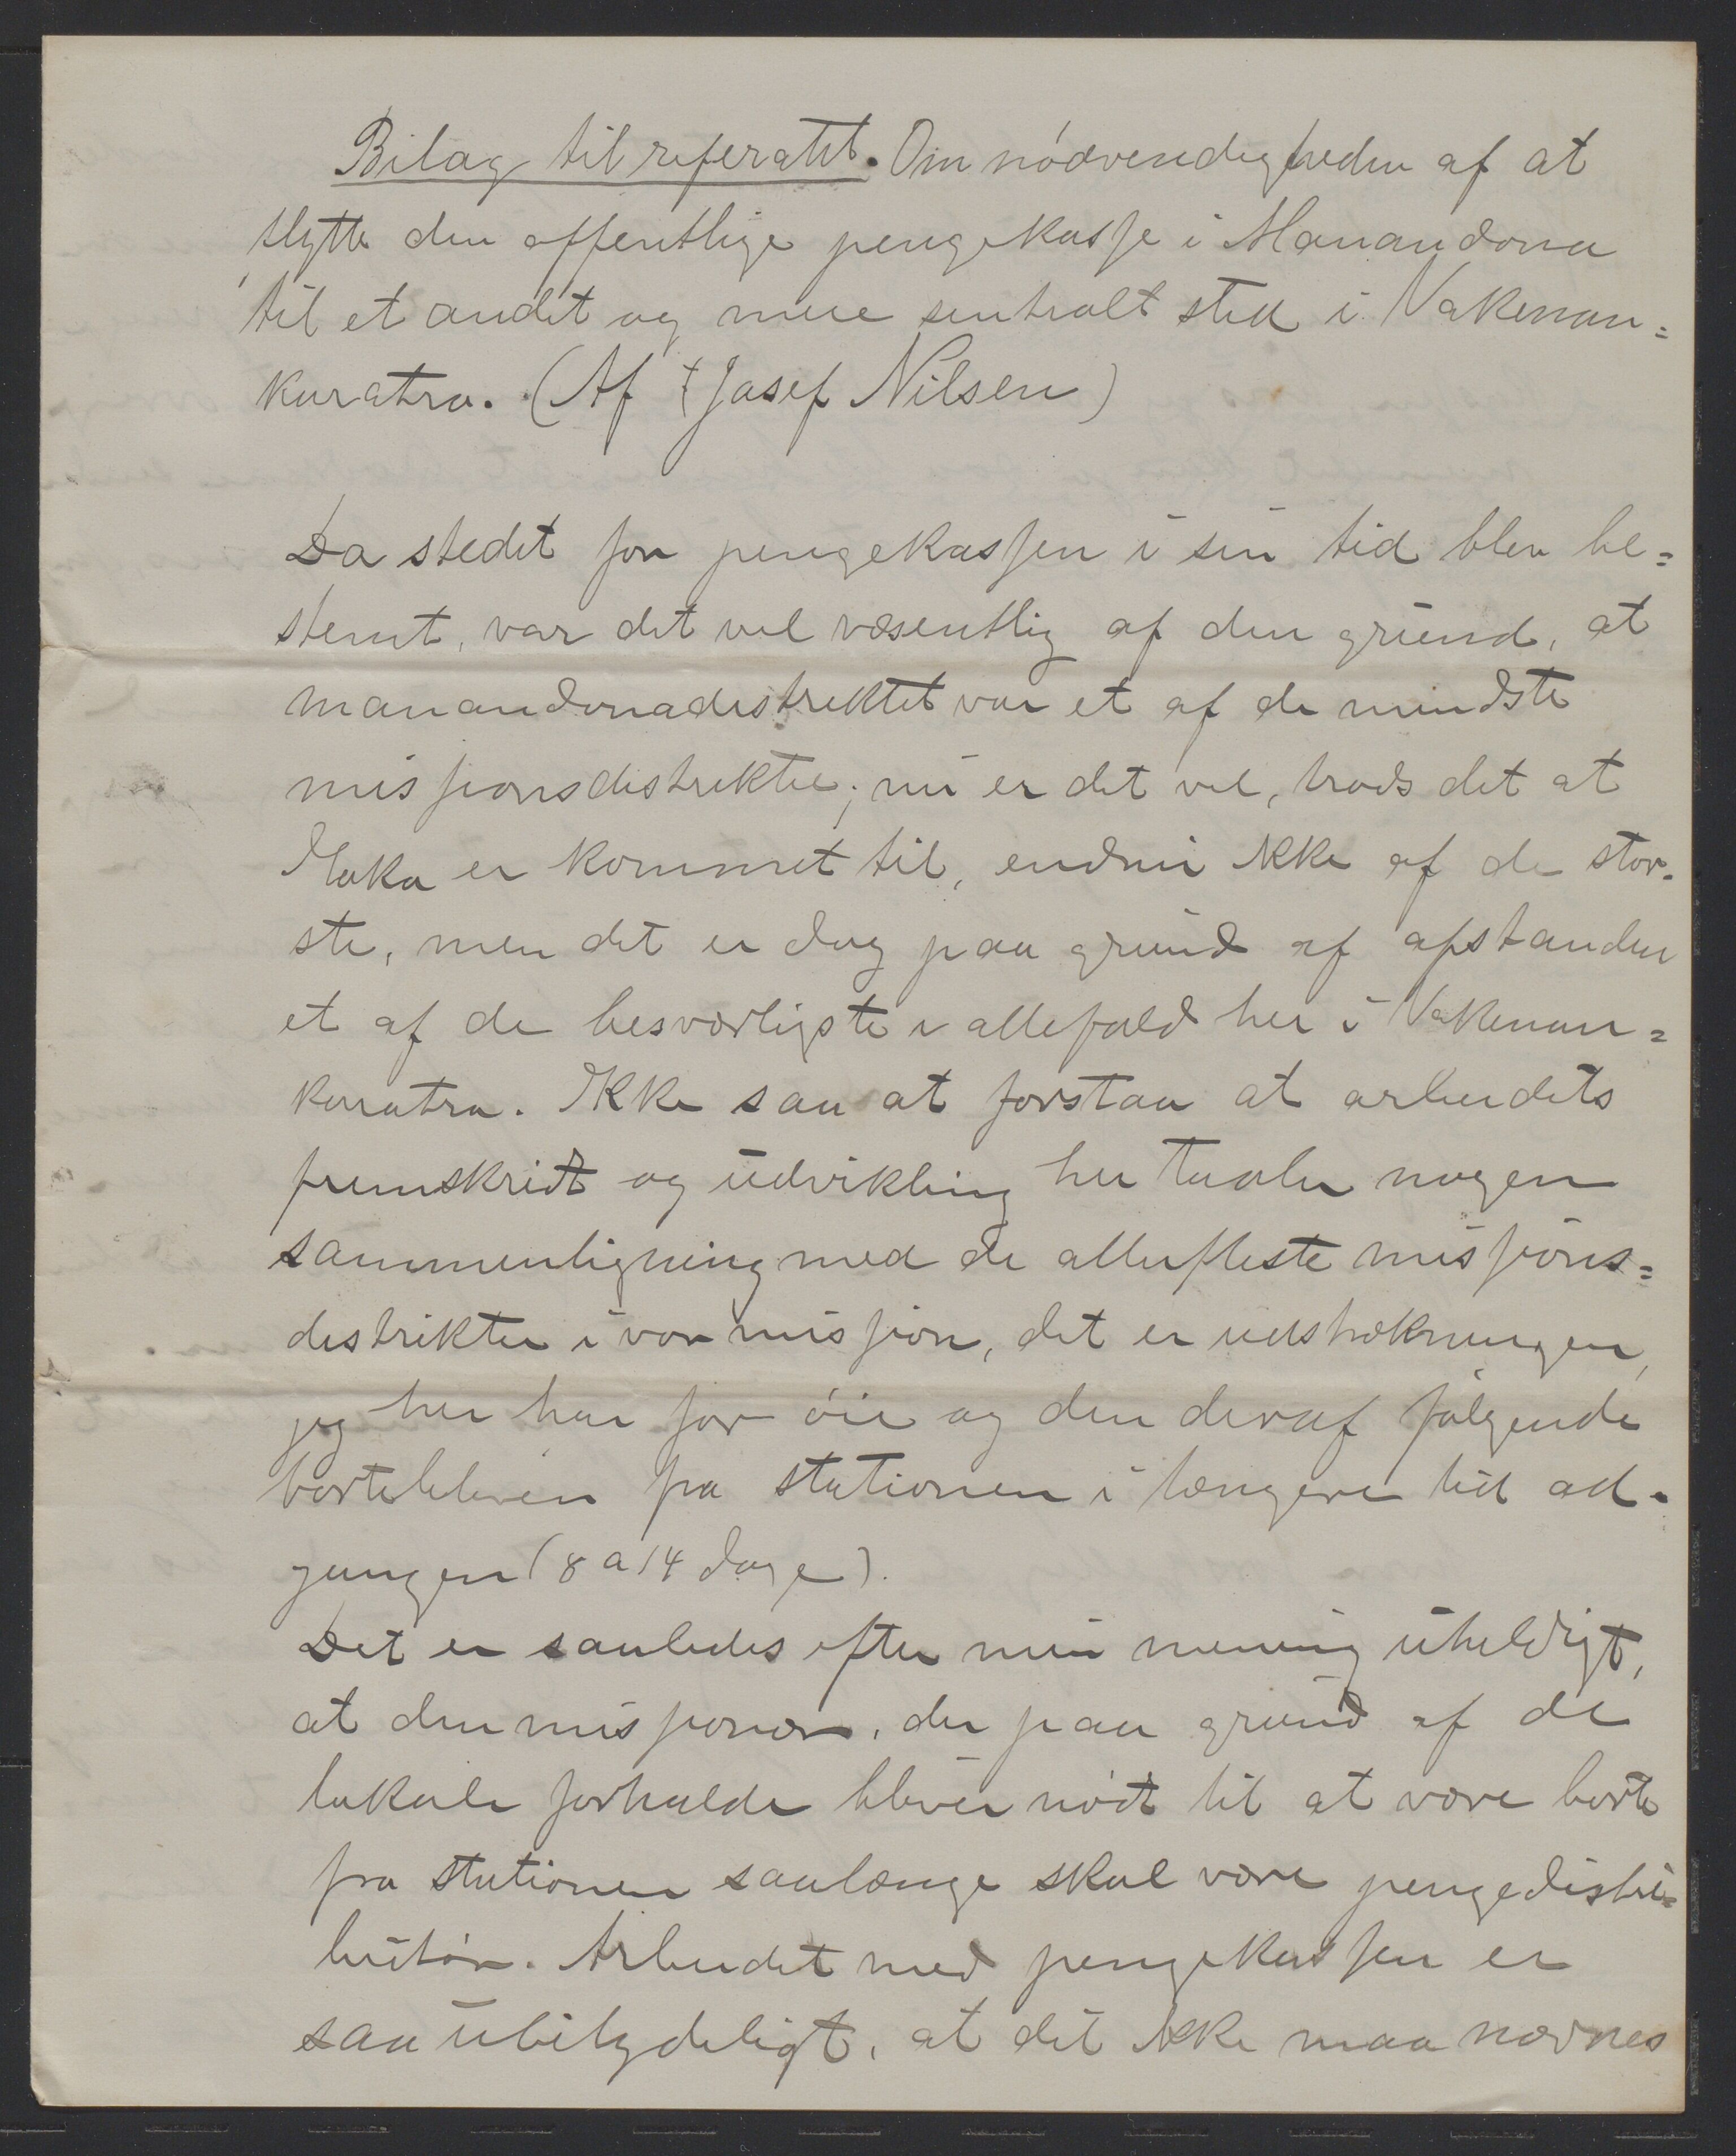 Bilag til referatet. Om nödvendigheden af at
flytte den offentlige pengekasse i Manandona
til et andet og mere sentralt sted i Vakenan=
karatra. (Af Josef Nilsen)
Da stedet for pengekassen i sin tid blev be=
stemt, var det vel væsentlig af den grund, at
manandonadistriktet var et af de mindste
missionsdistrikter; nu er det vel, trods det at
er kommet til, endnu ikke af de stør-
ste, men det er dog paa grund af afstanden
et af de besværligste i allefald her i Vakenan=
karatra. Ikke saa at forstaa at arbeidets
fremskridt og udvikling her taaler nogen
sammenligning med de allerfleste missions=
distrikter i vor mission, det er udstrækningen,
jeg her har for öie og den deraf følgende
borteblieven fra stationen i længere tid ad-
gangen (8 a 14 dage).
Det er saaledes efter min mening uheldigt,
at den missionær, der paa grund af de
lokale forholde bliver nödt til at være borte
fra stationen saalænge skal være pengedistri=
butör. Arbeidet med pengekassen er
saa ubetydeligt, at det ikke maa nævnes